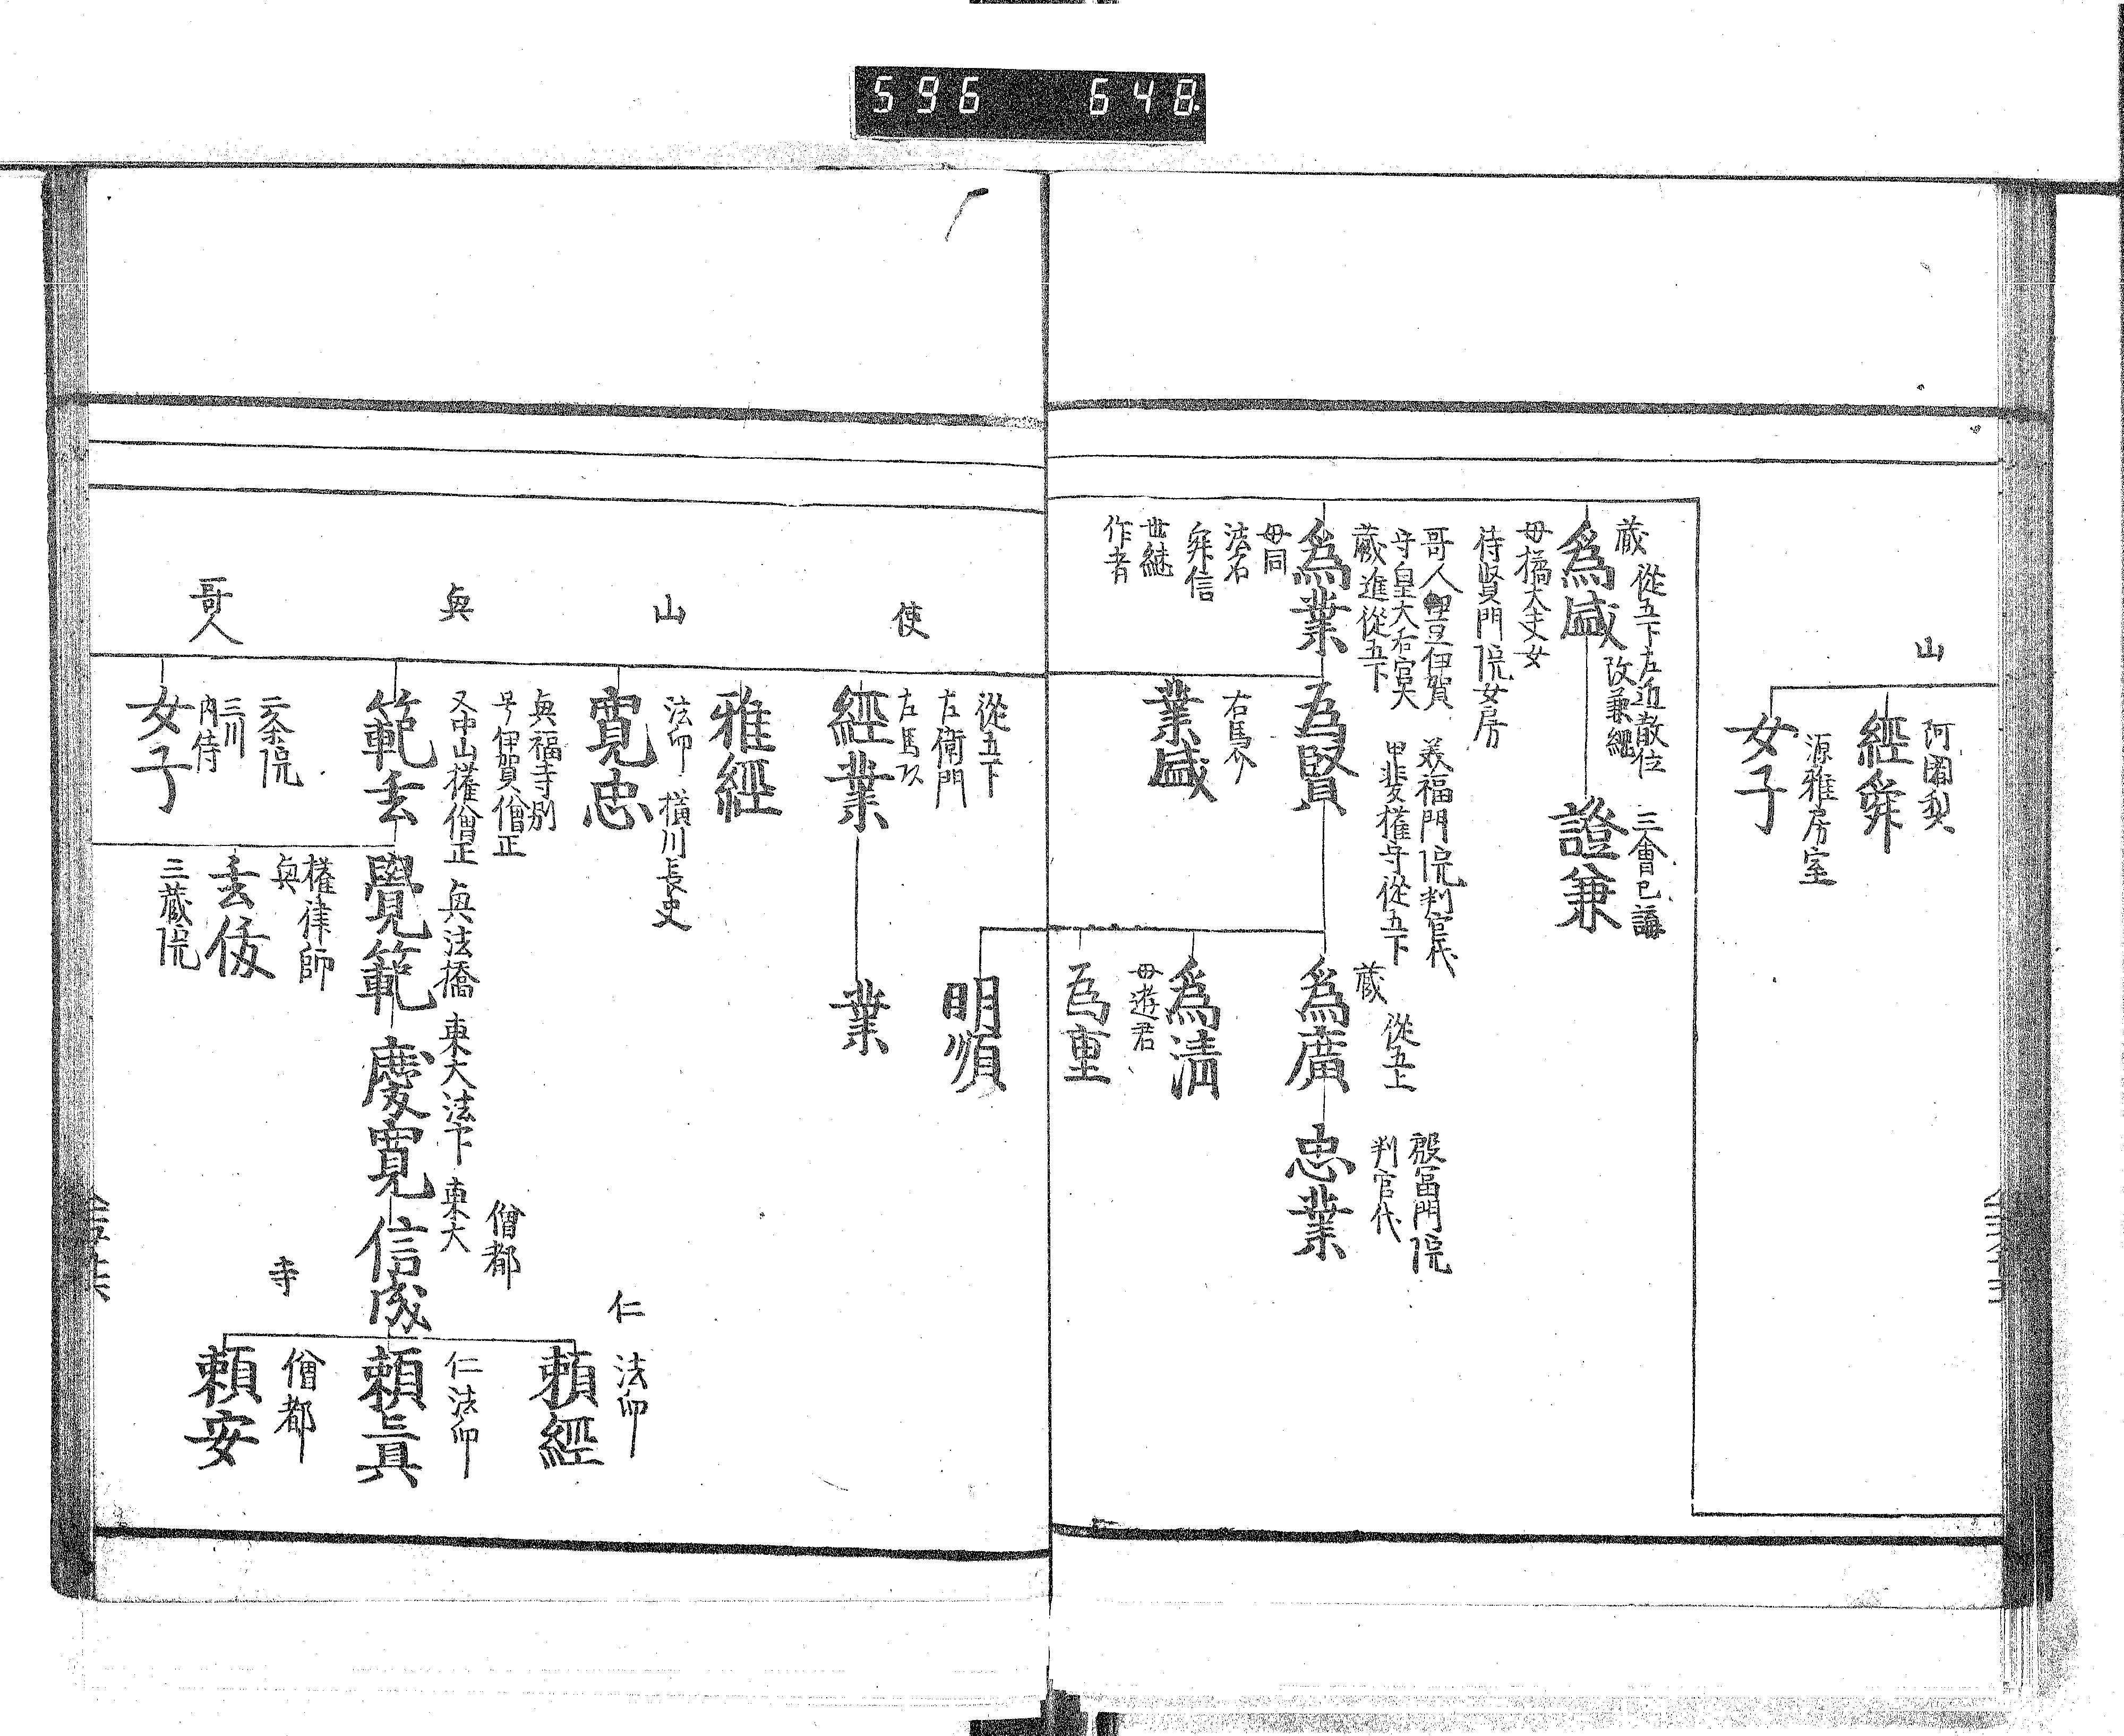 596 648
山
阿闍梨
經舜
源雅房室
女子
藏 從五下左近散位
改兼經
爲盛
母橘大夫女
待賢門院女房
三會已講
證兼
哥人伊豆伊賀
守皇太后宮大
藏進從五下
爲業
母同
法名
舜信
世継
作者
美福門院判官代
甲斐權守從五下
為賢
右馬介
業盛
藏 從五上
爲廣
殷富門院
判官代
忠業
爲清
母遊君
為重
明順
使
從五下
左衛門
左馬允
經業
業
雅經
山
法印 横川長吏
寛忠
興
興福寺別
号伊賀僧正
又中山權僧正
範玄
興法橋
覺範
東大法下
慶寛
東大
僧都
信成
仁
法印
頼經
仁法印
頼真
寺
僧都
頼安
權律師
興
玄俊
三蔵院
哥人
二条院
三川
内侍
女子